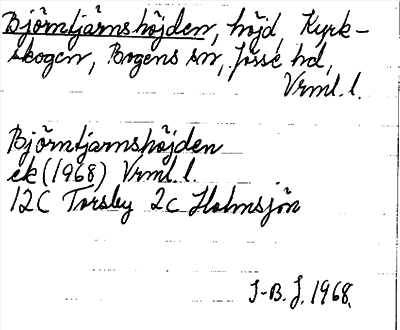 Björntjärnshöjden, höjd, Kyrk-
skogen, Bogens sn, Jösse hd,
Vrml. l.
Björntjarnshöjden
ek (1968) Vrml. l.
12C Torsby 2c Holmsjön
I-B. J. 1968.